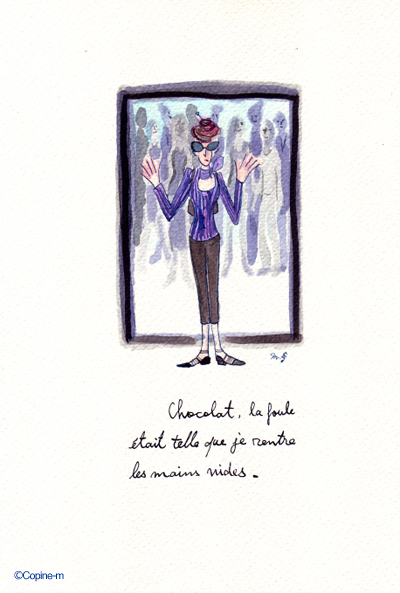 Chocolat, la foule
était telle que je rentre
les mains vides.
©Copine-m